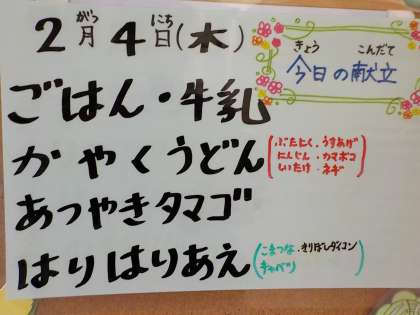 2月4日(木)
がつ にち
きょう こんだて
今日の献立
ごはん・牛乳
かやくうどん
ぶたにく・うすあげ
にんじん・カマボコ
しいたけ・ネギ
あつやきタマゴ
はりはりあえ
こまつな・きりぼしダイコン
キャベツ